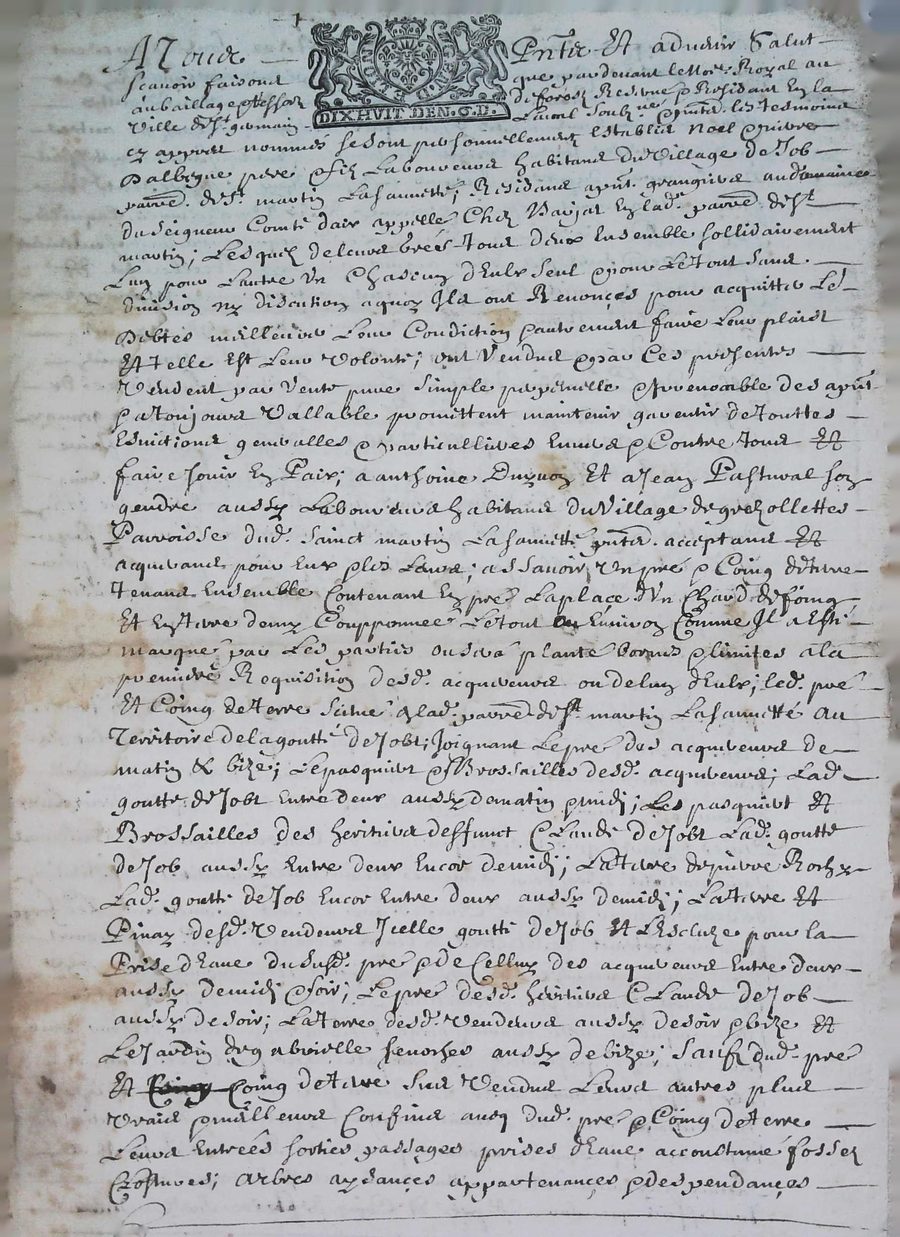 A Tous
Sçavoir faisons
au bailliage
ville de St germain
DIXHUIT DEN. G. D.
Pnts Et aduenir Salut
que pardevant le Notre Royal au
de forestz Reserve & Residant En la
les tesmoins
cy appres nommés se sont personnellement establis noel & pierre
Dalbegue pere & filz Laboureurs habitans du Village de Job
parre de St martin La sauueté; Residans apnt grangiers au domaine
du seigneur Comte dair appellé Chez En lad. parre de St
martin; Lesquelz de leurs grés tous deux Ensemble sollidairement
Lun pour Lautre Un Chascun d'Eulx seul & pour Le tout sans
division ny discution a quoy Ilz ont Renonçes pour acquitter Le
Debtes meilleurer Leur Condiction & autrement faire Leur plaisir
Et Telle Est Leur Volonté; ont Vendus & par Ces presentes
Vendent par Vente pure simple perpetuelle & Irrevocable des apnt
& a Toujours Vallable promettent maintenir garentir de Touttes
Esuictions generalles & particullieres Envers & Contre tous Et
faire Jouir En Paix; a anthoine Et a Jean Pastural son
gendre aussy Laboureurs habitans du Village de grezollettes
Parroisse dud. Sainct martin La sauueté pnts acceptans Et
acquerans pour Eux & les Leurs; assavoir Un pre & Coing de terre
Tenans Ensemble Contenant En pré La place d'Un Chard de foing
Et En terre deux Coupponnees Le tout ou Environ Comme Il a Esté
marqué par Les parties ou sera planté bornes & limites a la
premiere Requisition desd. acquereurs ou de lun d'Eulx; led. pré
Et Coing de terre scitué a lad. parre de St martin La sauuetté au
Territoire de la goutte de Jobt; Joignant Le pré des acquereurs de
matin & bize; Le pasquier & Brossailles desd. acquereurs; Lad.
goutte de Jobt Entre deux aussy de matin & midi; Les pasquiers Et
Brossailles des heritiers deffunct CLaude de Jobt Lad. goutte
de Job aussy Entre deux Encor de midi; La terre de pierre
Lad. goutte de Job Encor Entre deux aussy de midi; La terre Et
Pinay desd. Vendeurs Icelle goutte de Job Et Lescluze pour la
Prise d'Eaue du susd. pré & de Celluy des acquereurs Entre deux
aussy de midi & soir; Le pré desd. heritiers CLaude de Job
aussy de soir; La terre desd. Vendeurs aussy de soir & bize Et
Le Jardin de gabrielle aussy de bize; Sauf dud. pré
Et Coing de terre sus Vendus Leurs autres plus
Vrais & meilleurs Confins auec dud. pré & Coing de terre
Leurs Entrées sorties passages prises d'Eaue accoustumé fossez
Clostures; arbres aysances appartenances & despendances